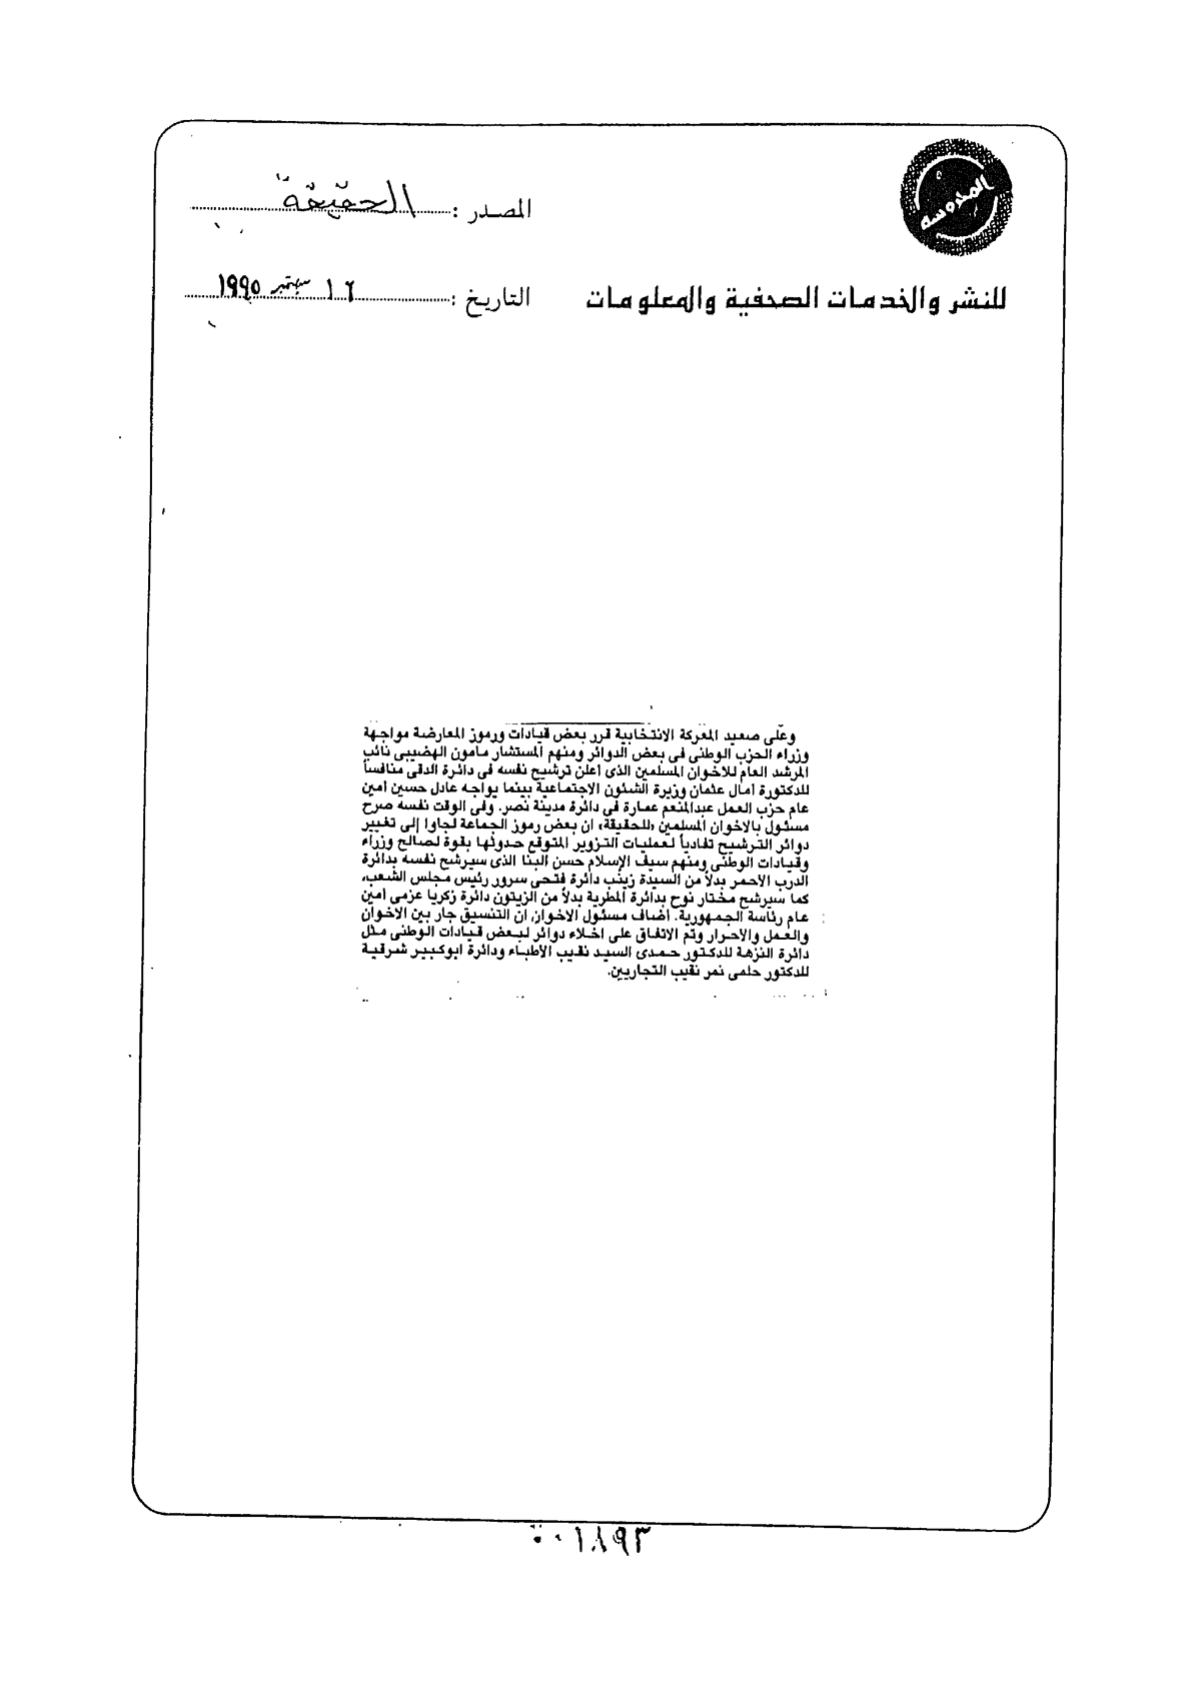 المحروسة
المصدر : الحقيقة
للنشر والخدمات الصحفية والمعلومات
التاريخ : ١٦ سبتمبر ١٩٩٥
وعلى صعيد المعركة الانتخابية قرر بعض قيادات ورموز المعارضة مواجهة
وزراء الحزب الوطنى فى بعض الدوائر ومنهم المستشار مامون الهضيبى نائب
المرشد العام للاخوان المسلمين الذى اعلن ترشيح نفسه فى دائرة الدقى منافساً
للدكتورة امال عثمان وزيرة الشئون الاجتماعية بينما يواجه عادل حسين امين
عام حزب العمل عبدالمنعم عمارة فى دائرة مدينة نصر. وفى الوقت نفسه صرح
مسئول بالاخوان المسلمين «للحقيقة» ان بعض رموز الجماعة لجاوا إلى تغيير
دوائر الترشيح تفادياً لعمليات التزوير المتوقع حدوثها بقوة لصالح وزراء
وقيادات الوطنى ومنهم سيف الإسلام حسن البنا الذى سيرشح نفسه بدائرة
الدرب الاحمر بدلاً من السيدة زينب دائرة فتحى سرور رئيس مجلس الشعب،
كما سيرشح مختار نوح بدائرة المطرية بدلاً من الزيتون دائرة زكريا عزمى امين
عام رئاسة الجمهورية. اضاف مسئول الاخوان ان التنسيق جار بين الاخوان
والعمل والاحرار وتم الاتفاق على اخلاء دوائر لبعض قيادات الوطنى مثل
دائرة النزهة للدكتور حمدى السيد نقيب الاطباء ودائرة ابوكبير شرقية
للدكتور حلمى نمر نقيب التجاريين.
٠٠١٨٩٣